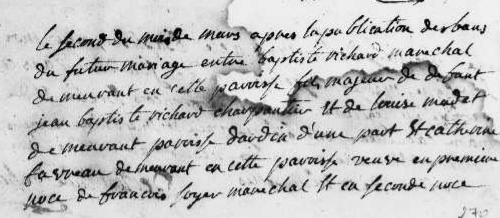 le second du mois de mars apres la publication des bans
du futur mariage entre baptiste richard marechal
demeurant en cette parroisse fils majeur de defunt
jean baptiste richard charpentier et de louise madet
demeurant parroisse dardin d'une part et catherine
favreau demeurant en cette parroisse veuve en premiere
noce de francois soyer marechal et en seconde noce